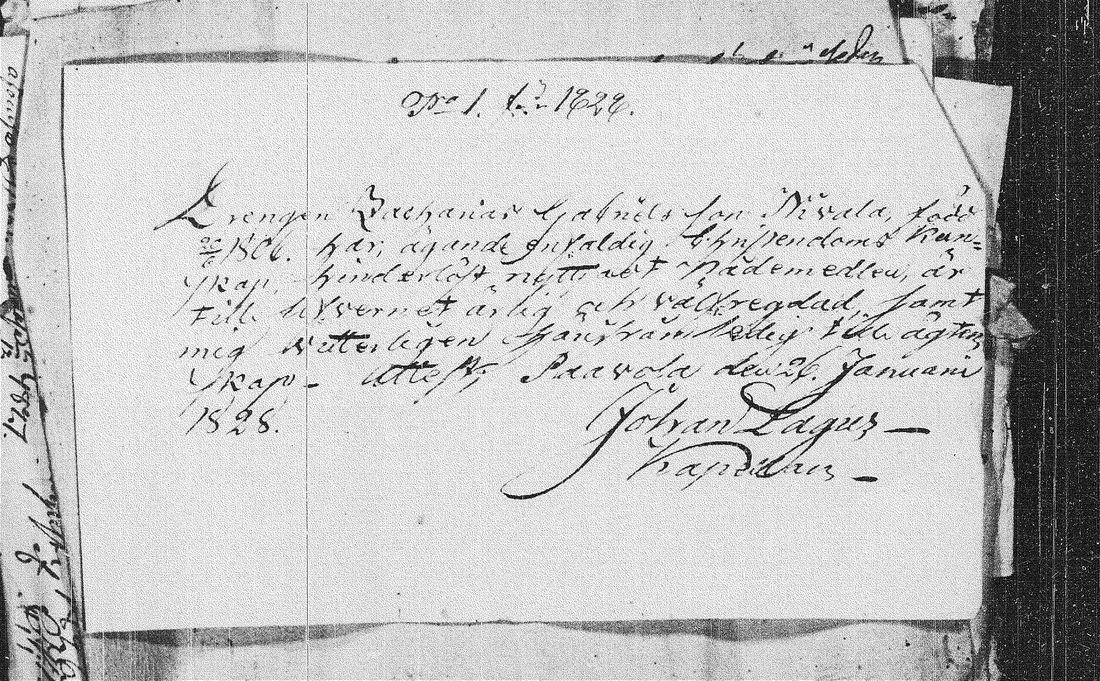 No 1. 1828.
Drengen Zacharias Gabriels son Nivala, född
20/6 1806. har, ägande enfaldig Christendoms kun-
skap, hinderlöst nyttjat Nådemedlen, är
till lefvernet ärlig och välfregdad, samt
mig veterligen härifrån ledig till ägten
skap - Attest, Paavola den 26. Januarii
1828. Johan Lagus
Kapellan
1827.